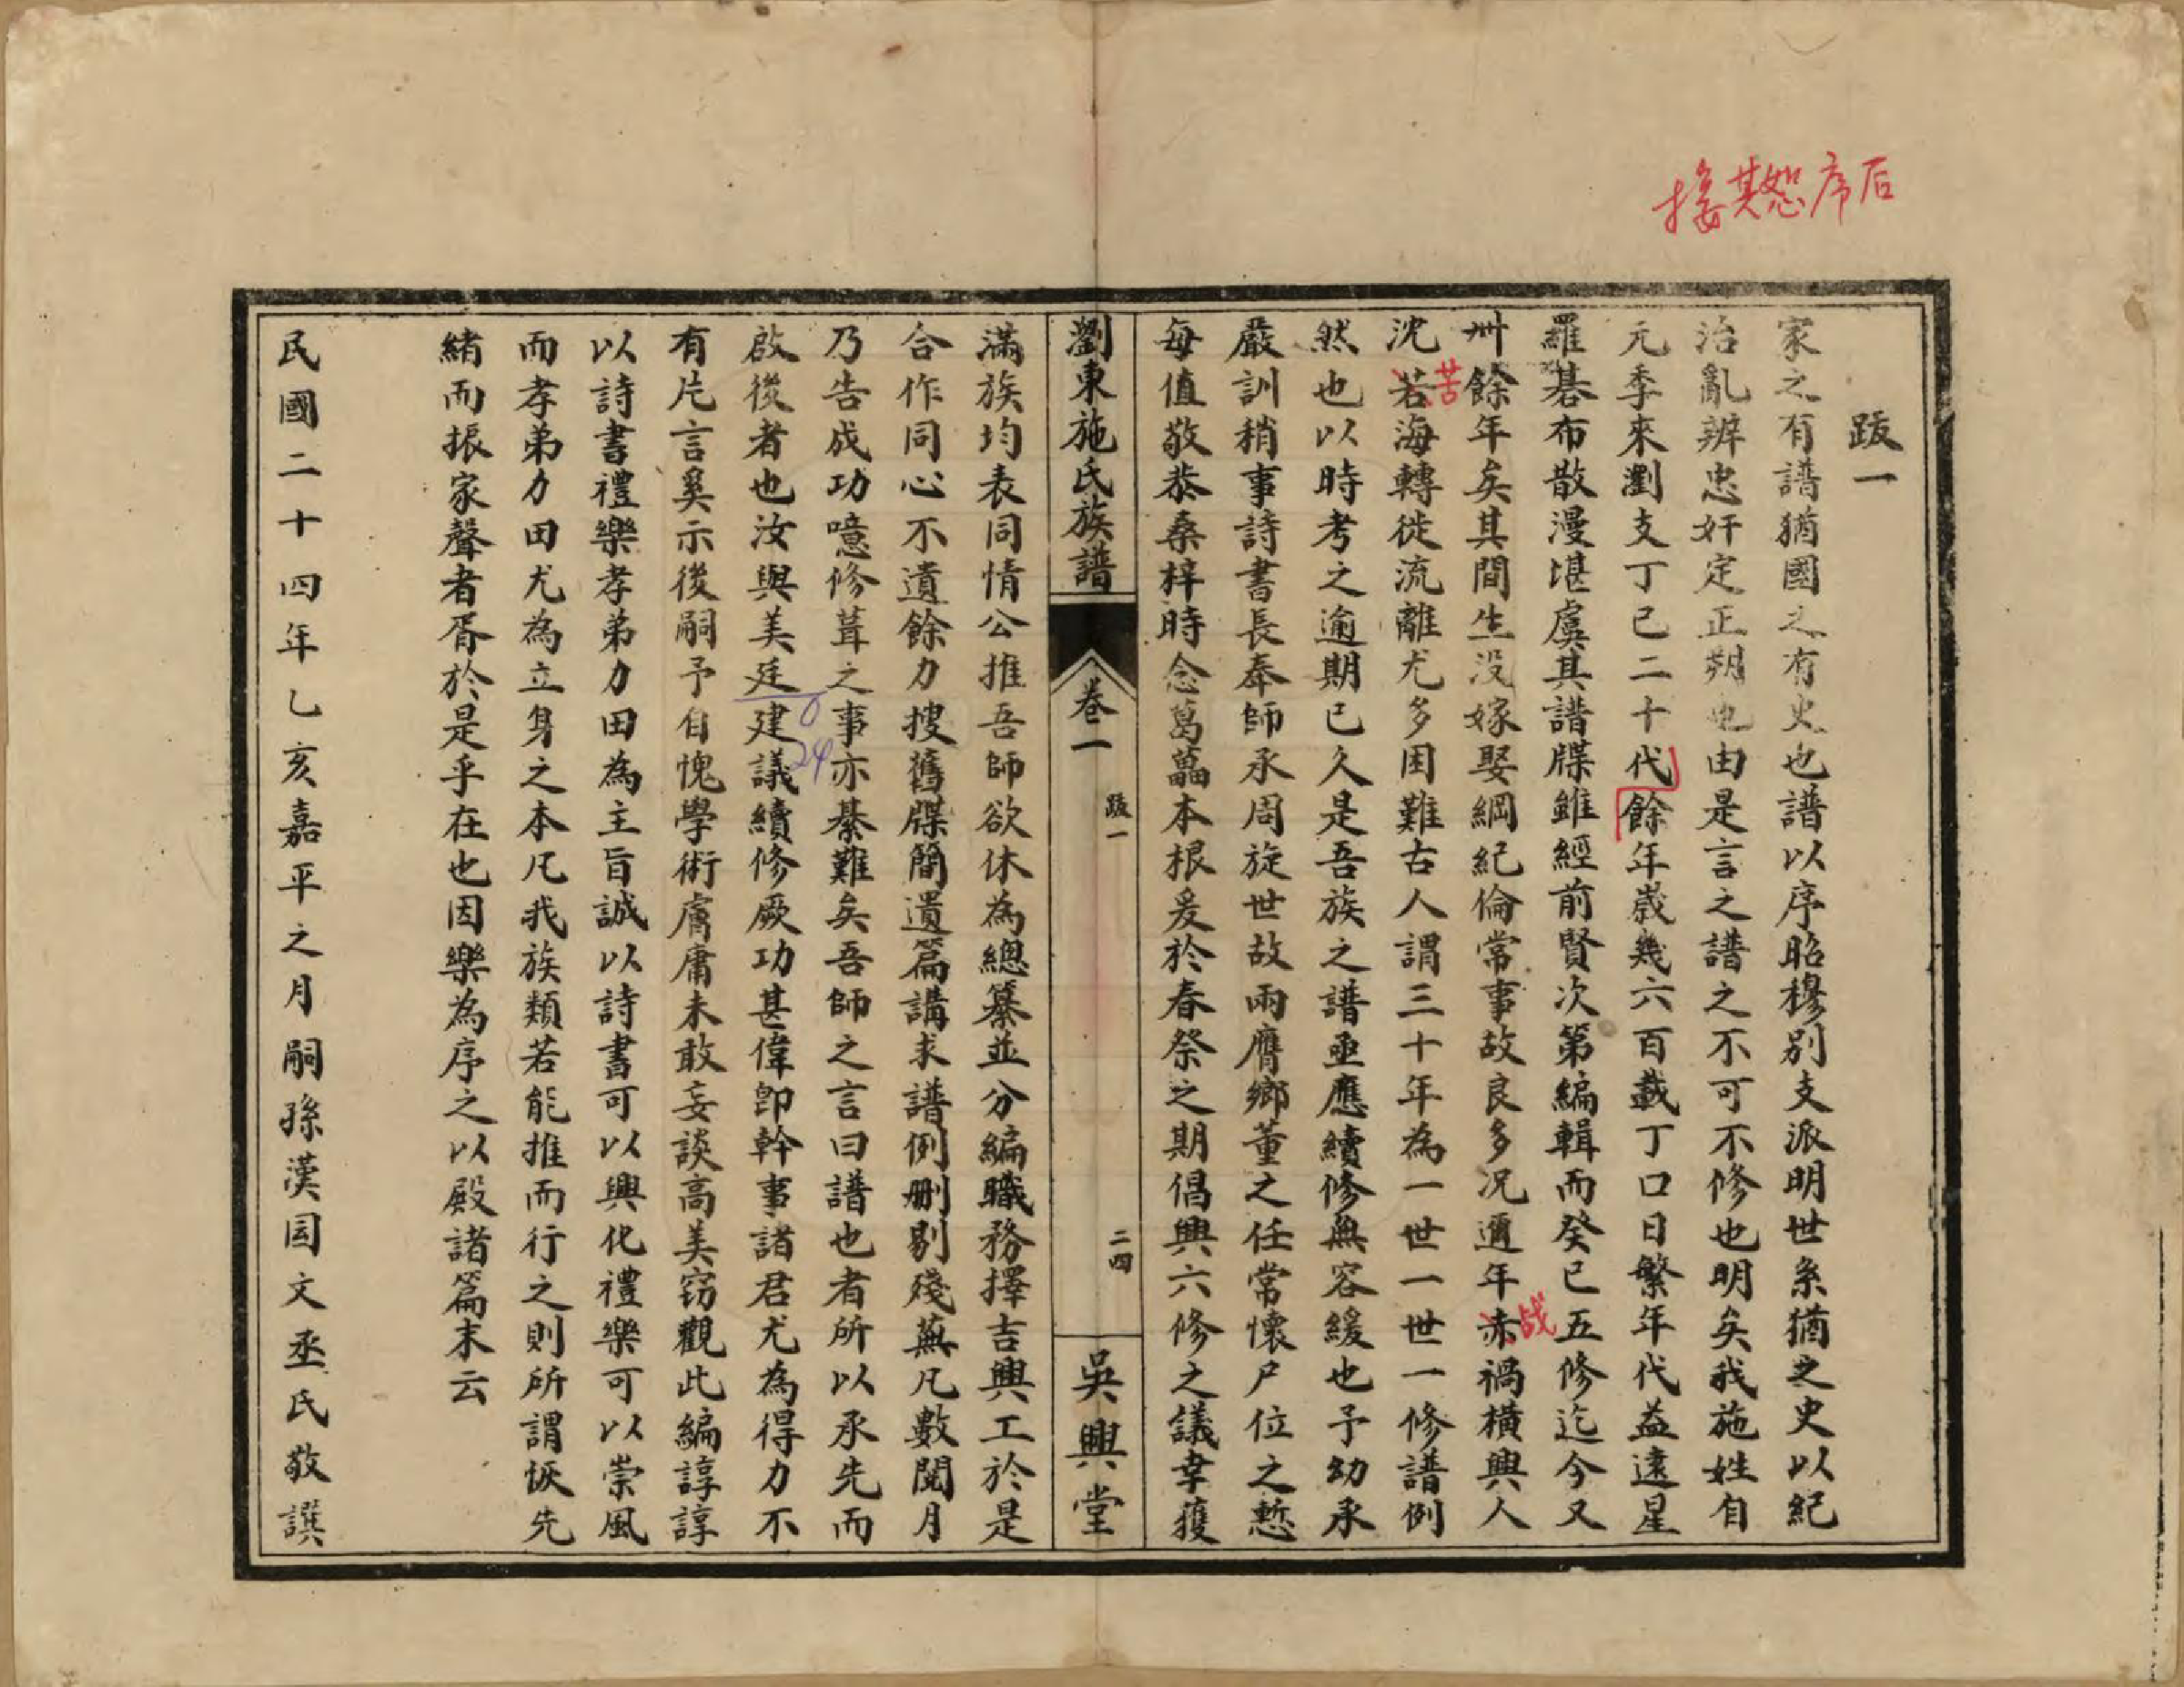 接其恕序后
跋一
家之有譜猶國之有史也譜以序昭穆别支派明世系猶之史以紀
治亂辨忠奸定正朔也由是言之譜之不可不修也明矣我施姓自
元季來瀏支丁已二十代餘年歲幾六百載丁口日繁年代益遠星
羅碁布散漫堪虞其譜牒雖經前賢次第編輯而癸巳五修迄今又
卅餘年矣其間生没嫁娶綱紀倫常事故良多况邇年赤禍橫興人
战
沈若海轉徙流離尤多困難古人謂三十年為一世一世一修譜例
苦
然也以時考之逾期已久是吾族之譜亟應續修無容緩也予幼承
嚴訓稍事詩書長奉師承周旋世故兩膺鄉董之任常懷尸位之慙
每值敬恭桑梓時念葛藟本根爰於春祭之期倡興六修之議幸獲
瀏東施氏族譜
卷一
跋一
二四
吳興堂
滿族均表同情公推吾師欲休為總纂並分編職務擇吉興工於是
合作同心不遺餘力搜舊牒簡遺篇講求譜例删剔殘蕪凡數閱月
乃告成功噫修葺之事亦綦難矣吾師之言曰譜也者所以承先而
啟後者也汝與美廷建議續修厥功甚偉卽幹事諸君尤為得力不
24
有片言奚示後嗣予自愧學術膚庸未敢妄談高美窃觀此編諄諄
以詩書禮樂孝弟力田為主旨誠以詩書可以興化禮樂可以崇風
而孝弟力田尤為立身之本凡我族類若能推而行之則所謂恢先
緒而振家聲者胥於是乎在也因樂為序之以殿諸篇末云
民國二十四年乙亥嘉平之月嗣孫漢国文丞氏敬譔